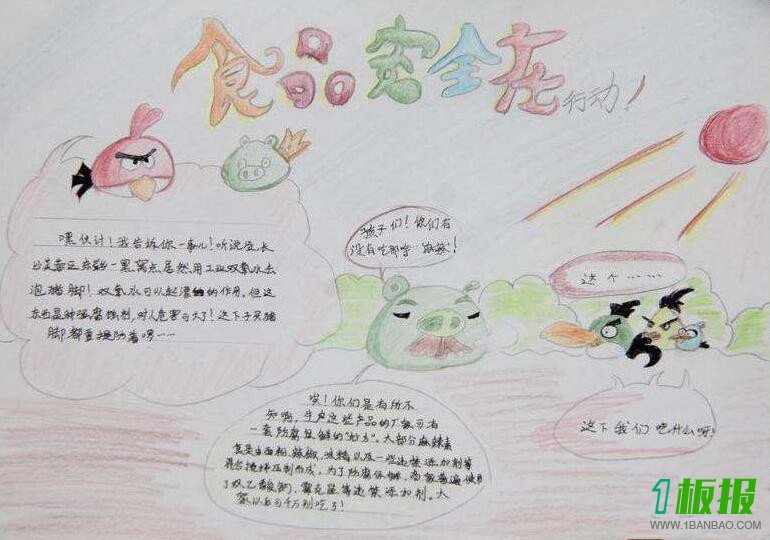 食品安全在行动！
嘿伙计！我告诉你一事儿！听说在长
沙芙蓉区查获一黑窝点居然用工业双氧水去
泡猪脚！双氧水可以起漂白的作用，但这
东西是种强腐蚀剂，对人危害可大了！这下子买猪
脚都要提防着喽……
孩子们！你们有
没有吃那些“麻辣”！
这个……
这下我们吃什么呀！
唉！你们是有所不
知啊，生产这些产品的厂家都有
一套防腐保鲜的“妙方”。大部分麻辣素
食是由面粉、辣椒、味精以及一些违禁添加剂等
混合搅拌压制而成。为了防腐保鲜，
了双乙酸钠、霉克星等违禁添加剂。大
家以后可千万别吃了！
1板报
WWW.1BANBAO.COM